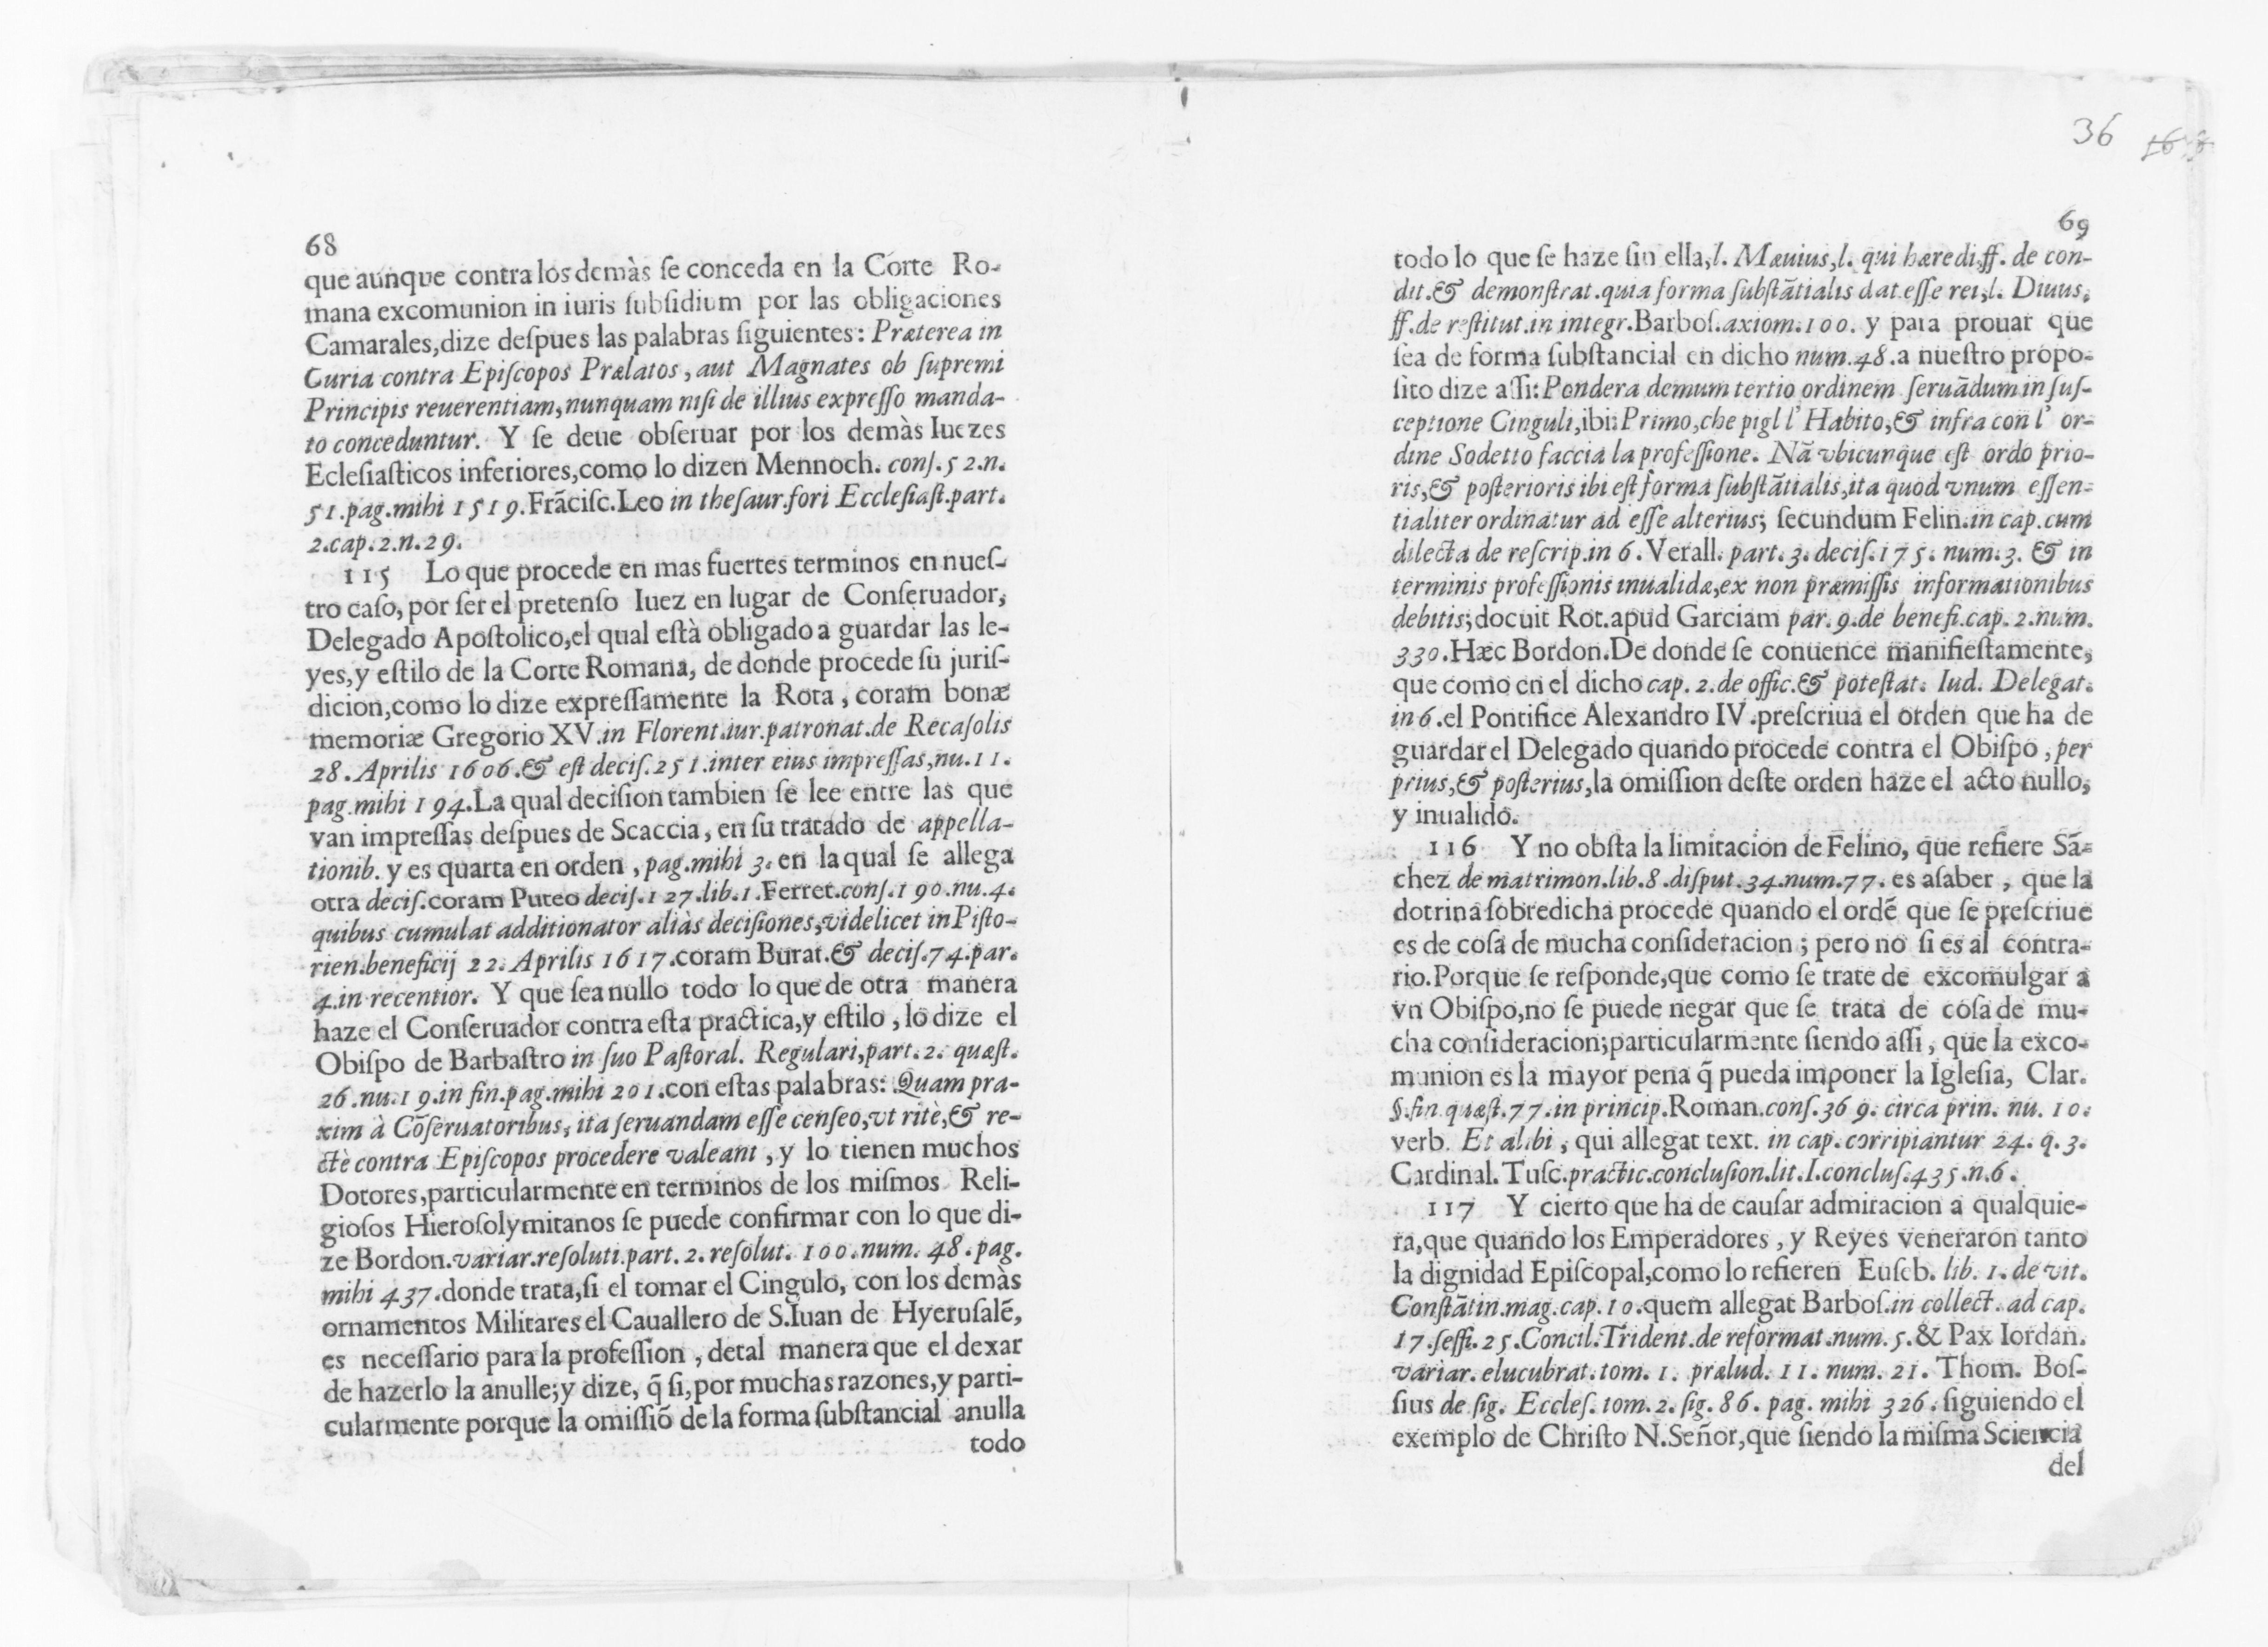 68
que aunque contra los demàs ſe conceda en la Corte Ro-
mana excomunion in iuris ſubſidium por las obligaciones
Camarales, dize deſpues las palabras ſiguientes: Præterea in
Curia contra Epiſcopos Prælatos, aut Magnates ob ſupremi
Principis reuerentiam, nunquam niſi de illius expreſſo manda-
to conceduntur. Y ſe deue obſeruar por los demàs Iuezes
Ecleſiaſticos inferiores, como lo dizen Mennoch. conſ. 52. n.
51. pag. mihi 1519. Frãciſc. Leo in theſaur. fori Eccleſiaſt. part.
2. cap. 2. n. 29.
115 Lo que procede en mas fuertes terminos en nueſ-
tro caſo, por ſer el pretenſo Iuez en lugar de Conſeruador,
Delegado Apoſtolico, el qual eſtà obligado a guardar las le-
yes, y eſtilo de la Corte Romana, de donde procede ſu juriſ-
dicion, como lo dize expreſſamente la Rota, coram bonæ
memoriæ Gregorio XV. in Florent. iur. patronat. de Recaſolis
28. Aprilis 1606. & eſt deciſ. 251. inter eius impreſſas, nu. 11.
pag. mihi 194. La qual deciſion tambien ſe lee entre las que
van impreſſas deſpues de Scaccia, en ſu tratado de appella-
tionib. y es quarta en orden, pag. mihi 3. en la qual ſe allega
otra deciſ. coram Puteo deciſ. 127. lib. 1. Ferret. conſ. 190. nu. 4.
quibus cumulat additionator aliàs deciſiones, videlicet in Piſto-
rien. beneficij 22. Aprilis 1617. coram Burat. & deciſ. 74. par.
4. in recentior. Y que ſea nullo todo lo que de otra manera
haze el Conſeruador contra eſta practica, y eſtilo, lo dize el
Obiſpo de Barbaſtro in ſuo Paſtoral. Regulari, part. 2. quæſt.
26. nu. 19. in fin. pag. mihi 201. con eſtas palabras: Quam pra-
xim à Cõſeruatoribus, ita ſeruandam eſſe cenſeo, vt ritè, & re-
ctè contra Epiſcopos procedere valeant, y lo tienen muchos
Dotores, particularmente en terminos de los miſmos Reli-
gioſos Hieroſolymitanos ſe puede confirmar con lo que di-
ze Bordon. variar. reſoluti. part. 2. reſolut. 100. num. 48. pag.
mihi 437. donde trata, ſi el tomar el Cingulo, con los demàs
ornamentos Militares el Cauallero de S. Iuan de Hyeruſalẽ,
es neceſſario para la profeſſion, detal manera que el dexar
de hazerlo la anulle; y dize, q̃ ſi, por muchas razones, y parti-
cularmente porque la omiſſiõ de la forma ſubſtancial anulla
todo
36
69
todo lo que ſe haze ſin ella, l. Mæuius, l. qui hæredi, ff. de con-
dit. & demonſtrat. quia forma ſubſtãtialis dat eſſe rei, l. Diuus,
ff. de reſtitut. in integr. Barboſ. axiom. 100. y para prouar que
ſea de forma ſubſtancial en dicho num. 48. a nueſtro propo-
ſito dize aſſi: Pondera demum tertio ordinem ſeruãdum in ſuſ-
ceptione Cinguli, ibi: Primo, che pigl l' Habito, & infra con l' or-
dine Sodetto faccia la profeſſione. Nã vbicunque eſt ordo prio-
ris, & poſterioris ibi eſt forma ſubſtãtialis, ita quod vnum eſſen-
tialiter ordinatur ad eſſe alterius; ſecundum Felin. in cap. cum
dilecta de reſcrip. in 6. Verall. part. 3. deciſ. 175. num. 3. & in
terminis profeſſionis inualidæ, ex non præmiſſis informationibus
debitis; docuit Rot. apud Garciam par. 9. de benefi. cap. 2. num.
330. Hæc Bordon. De donde ſe conuence manifieſtamente,
que como en el dicho cap. 2. de offic. & poteſtat. Iud. Delegat.
in 6. el Pontifice Alexandro IV. preſcriua el orden que ha de
guardar el Delegado quando procede contra el Obiſpo, per
prius, & poſterius, la omiſſion deſte orden haze el acto nullo,
y inualido.
116 Y no obſta la limitacion de Felino, que refiere Sã-
chez de matrimon. lib. 8. diſput. 34. num. 77. es aſaber, que la
dotrina ſobredicha procede quando el ordẽ que ſe preſcriue
es de coſa de mucha conſideracion; pero no ſi es al contra-
rio. Porque ſe reſponde, que como ſe trate de excomulgar a
vn Obiſpo, no ſe puede negar que ſe trata de coſa de mu-
cha conſideracion; particularmente ſiendo aſſi, que la exco-
munion es la mayor pena q̃ pueda imponer la Igleſia, Clar.
§. fin. quæſt. 77. in princip. Roman. conſ. 369. circa prin. nu. 10.
verb. Et alibi, qui allegat text. in cap. corripiantur 24. q. 3.
Cardinal. Tuſc. practic. concluſion. lit. I. concluſ. 435. n. 6.
117 Y cierto que ha de cauſar admiracion a qualquie-
ra, que quando los Emperadores, y Reyes veneraron tanto
la dignidad Epiſcopal, como lo refieren Euſeb. lib. 1. de vit.
Conſtãtin. mag. cap. 10. quem allegat Barboſ. in collect. ad cap.
17. ſeſſi. 25. Concil. Trident. de reformat. num. 5. & Pax Iordan.
variar. elucubrat. tom. 1. prælud. 11. num. 21. Thom. Boſ-
ſius de ſig. Eccleſ. tom. 2. ſig. 86. pag. mihi 326. ſiguiendo el
exemplo de Chriſto N. Señor, que ſiendo la miſma Sciencia
del